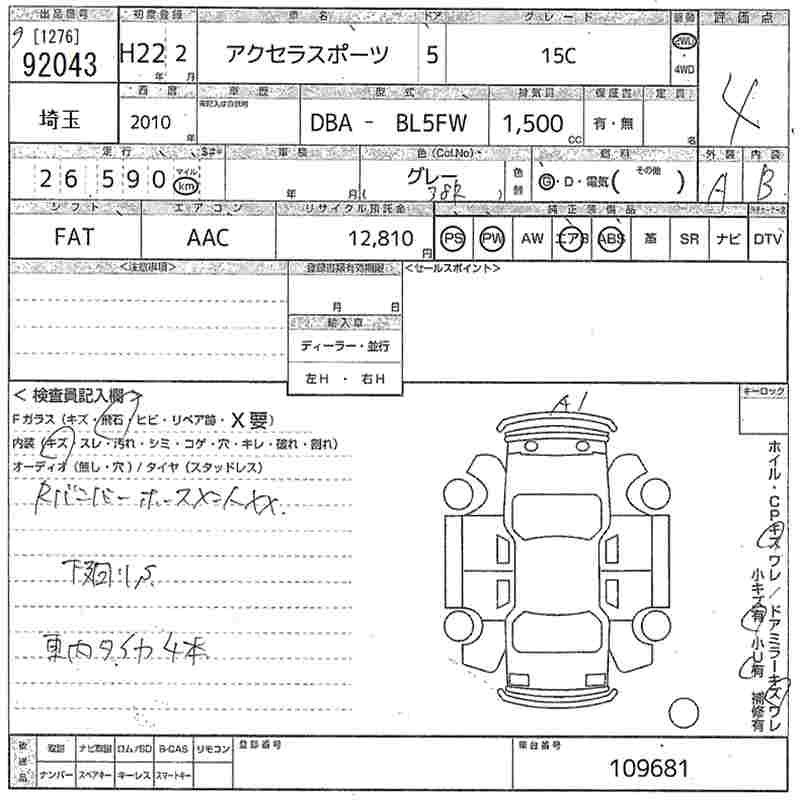 出品番号 初度登録 車名 ドア グレード 駆動 評価点
[1276]
92043 H22 2 アクセラスポーツ 5 15C 2WD 4
年 月 4WD
西暦 車歴 型式 排気量 保証書 定員
未記入は自家用
埼玉 2010 年 DBA - BL5FW 1,500 CC 有・無 名
走行 車検 色(Col.No) 燃料 外装 内装
26590 マイル km 年 月 グレー 色替 G・D・電気( その他 ) A B
( 38P )
シフト エアコン リサイクル預託金 純正装備品
FAT AAC 12,810 円 PS PW AW エアB ABS 革 SR ナビ DTV
<注意事項> 登録書類有効期限 <セールスポイント>
月 日
輸入車
ディーラー・並行
左H ・ 右H
< 検査員記入欄 > A1 キーロック
Fガラス(キズ・飛石・ヒビ・リペア跡・X要)
内装(キズ・スレ・汚れ・シミ・コゲ・穴・キレ・破れ・割れ)
オーディオ(無し・穴)/タイヤ(スタッドレス)
車内タイヤ4本
ホイル・CPキズワレ/ドアミラーキズワレ
小キズ有 小U有 補修有
後送品 取説 ナビ取説 ロム/SD B-CAS リモコン 登録番号 車台番号
ナンバー スペアキー キーレス スマートキー 109681